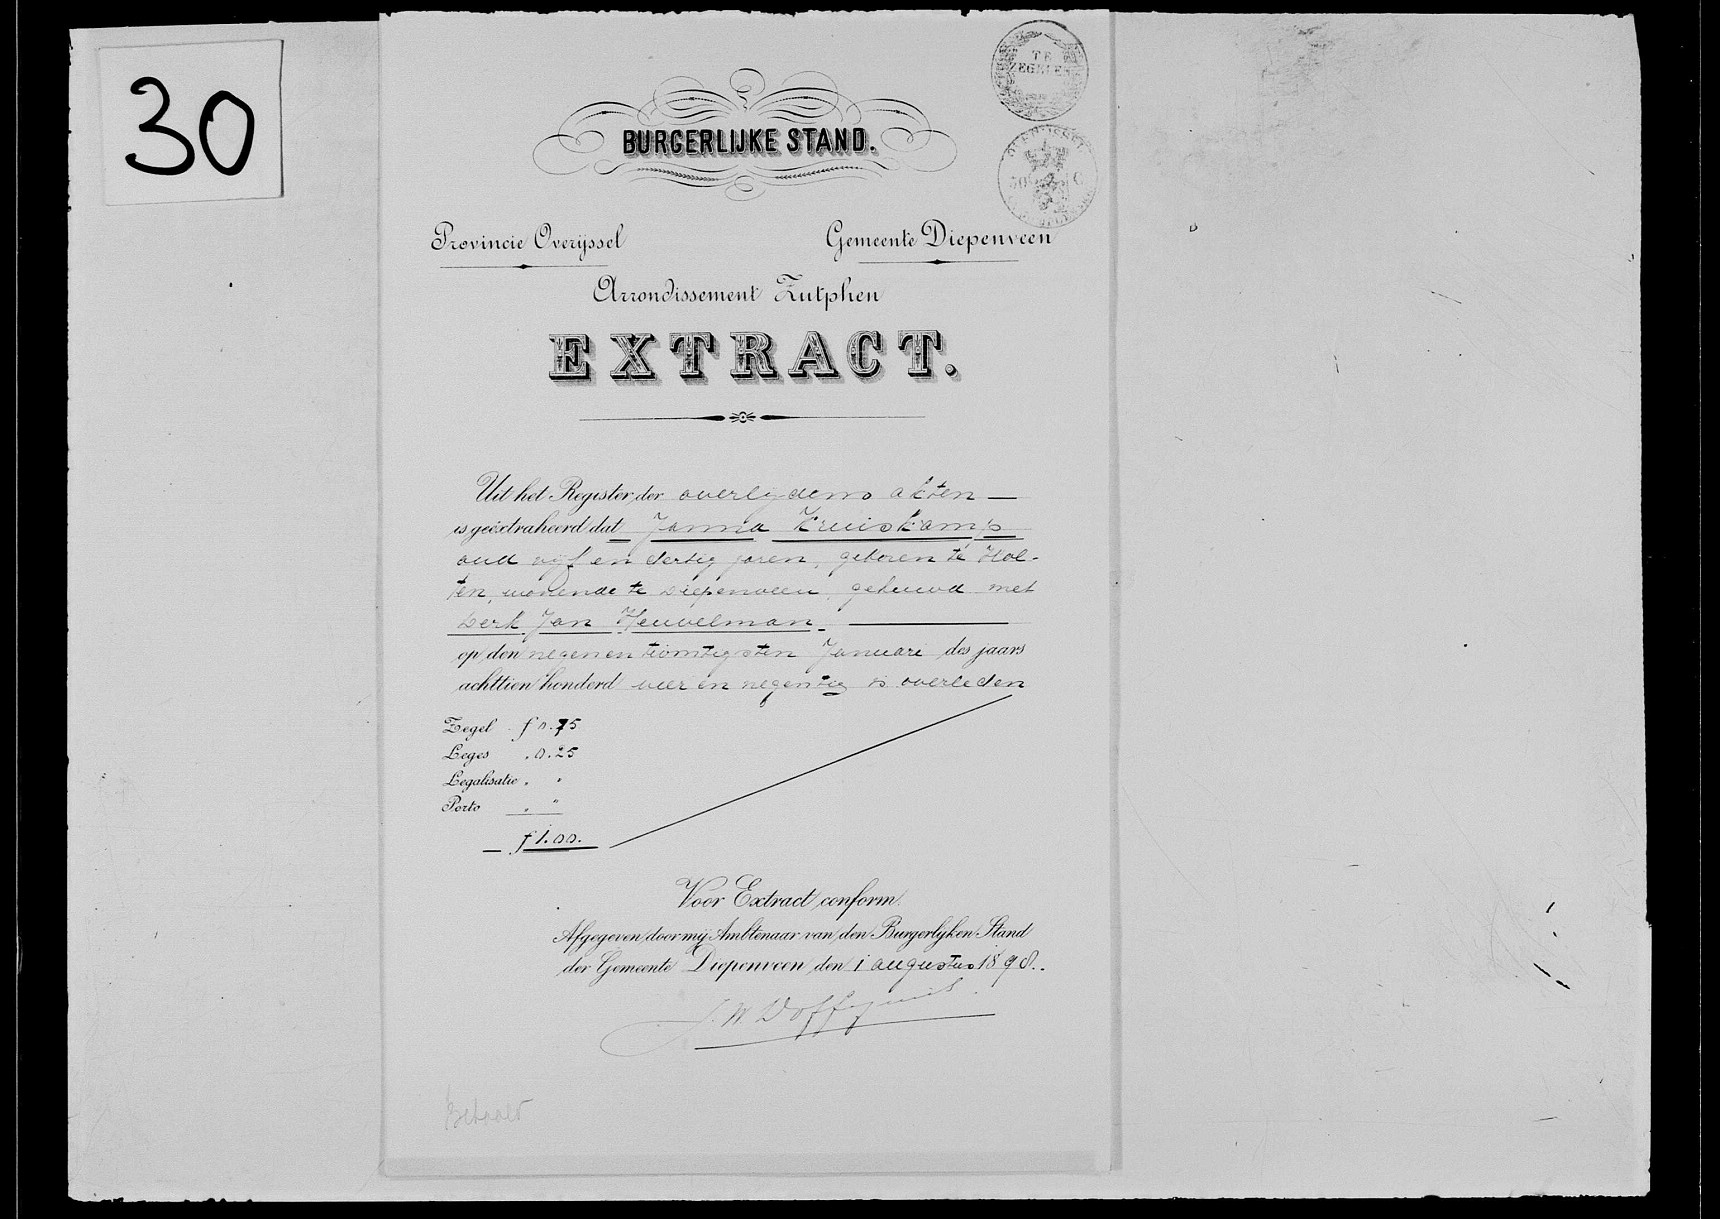 30
TE
ZEGELEN
BURGERLIJKE STAND.
Provincie Overijssel
Gemeente Diepenveen
Arrondissement Zutphen
EXTRACT.
Uit het Register der overlijdens akten
is geëxtraheerd dat Janna Kruiskamp
oud vijf en dertig jaren, geboren te Hol-
ten, wonende te Diepenveen, gehuwd met
Derk Jan Heuvelman
op den negen en twintigsten Januari des jaars
achttien honderd vier en negentig is overleden
Zegel f 0.75
Leges „ 0.25
Legalisatie „ „
Porto „ „
f 1.00.
Voor Extract conform.
Afgegeven door mij Ambtenaar van den Burgerlijken Stand
der Gemeente Diepenveen, den 1 augustus 1898.
Betaald